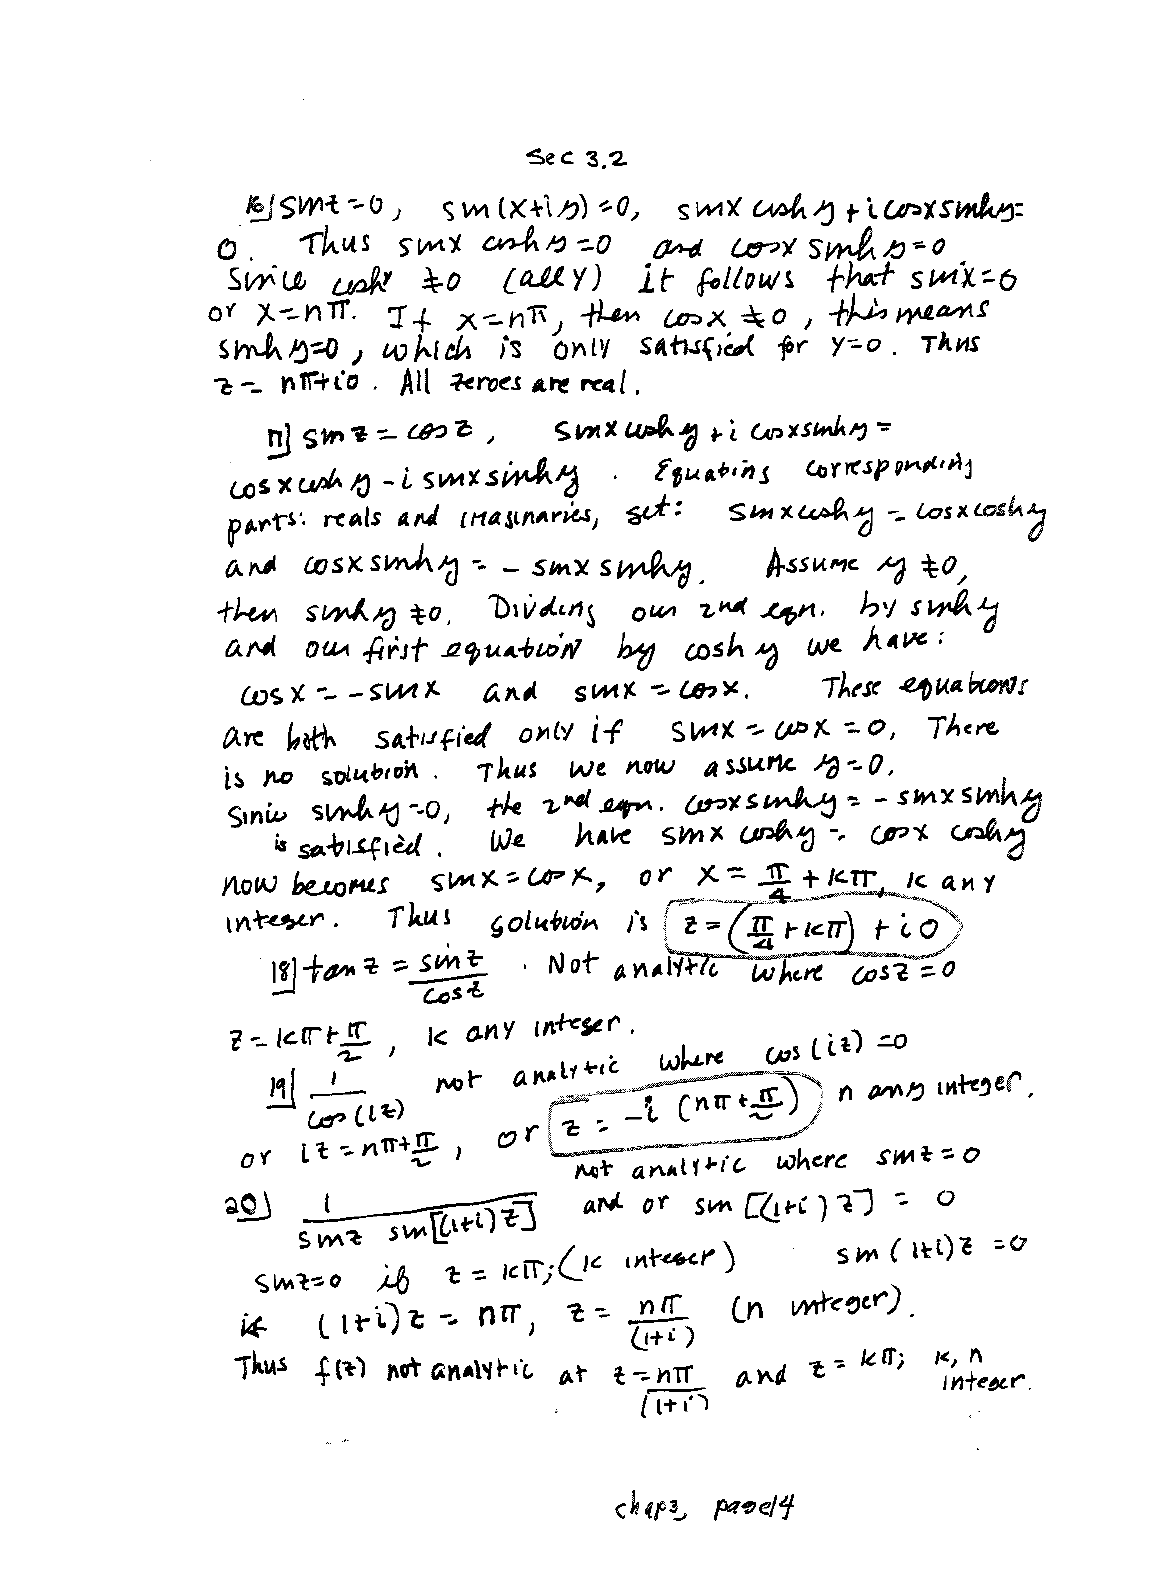 Sec 3.2
16] sin z = 0, sin(x+iy) = 0, sinx cosh y + i cosx sinhy =
0. Thus sinx cosh y = 0 and cosx sinh y = 0.
Since cosh y ≠ 0 (all y) it follows that sinx = 0
or x = nπ. If x = nπ, then cos x ≠ 0, this means
sinh y = 0, which is only satisfied for y = 0. Thus
z = nπ + i0. All zeroes are real.
17] sin z = cos z, sinx cosh y + i cosx sinh y =
cos x cosh y - i sinx sinh y. Equating corresponding
parts: reals and imaginaries, get: sinx cosh y = cosx cosh y
and cosx sinh y = - sinx sinhy. Assume y ≠ 0,
then sinh y ≠ 0. Dividing our 2nd eqn. by sinh y
and our first equation by cosh y we have:
cos x = - sin x and sinx = cosx. These equations
are both satisfied only if sinx = cos x = 0, There
is no solution. Thus we now assume y = 0.
Since sinh y = 0, the 2nd eqn. cosx sinhy = - sinx sinh y
is satisfied. We have sinx cosh y = cosx coshy
now becomes sinx = cos x, or x = π/4 + kπ, k any
integer. Thus solution is z = (π/4 + kπ) + i0
18] tan z = sin z / cos z. Not analytic where cos z = 0
z = kπ + π/2, k any integer.
19] 1/cos(iz) not analytic where cos(iz) = 0
or iz = nπ + π/2, or z = -i (nπ + π/2) n any integer.
not analytic where sin z = 0
20] 1/(sin z sin[(1+i)z]) and or sin [(1+i)z] = 0
sin z = 0 if z = kπ; (k integer) sin (1+i)z = 0
if (1+i)z = nπ, z = nπ/(1+i) (n integer).
Thus f(z) not analytic at z = nπ/(1+i) and z = kπ; k, n
integer.
chap3, page14